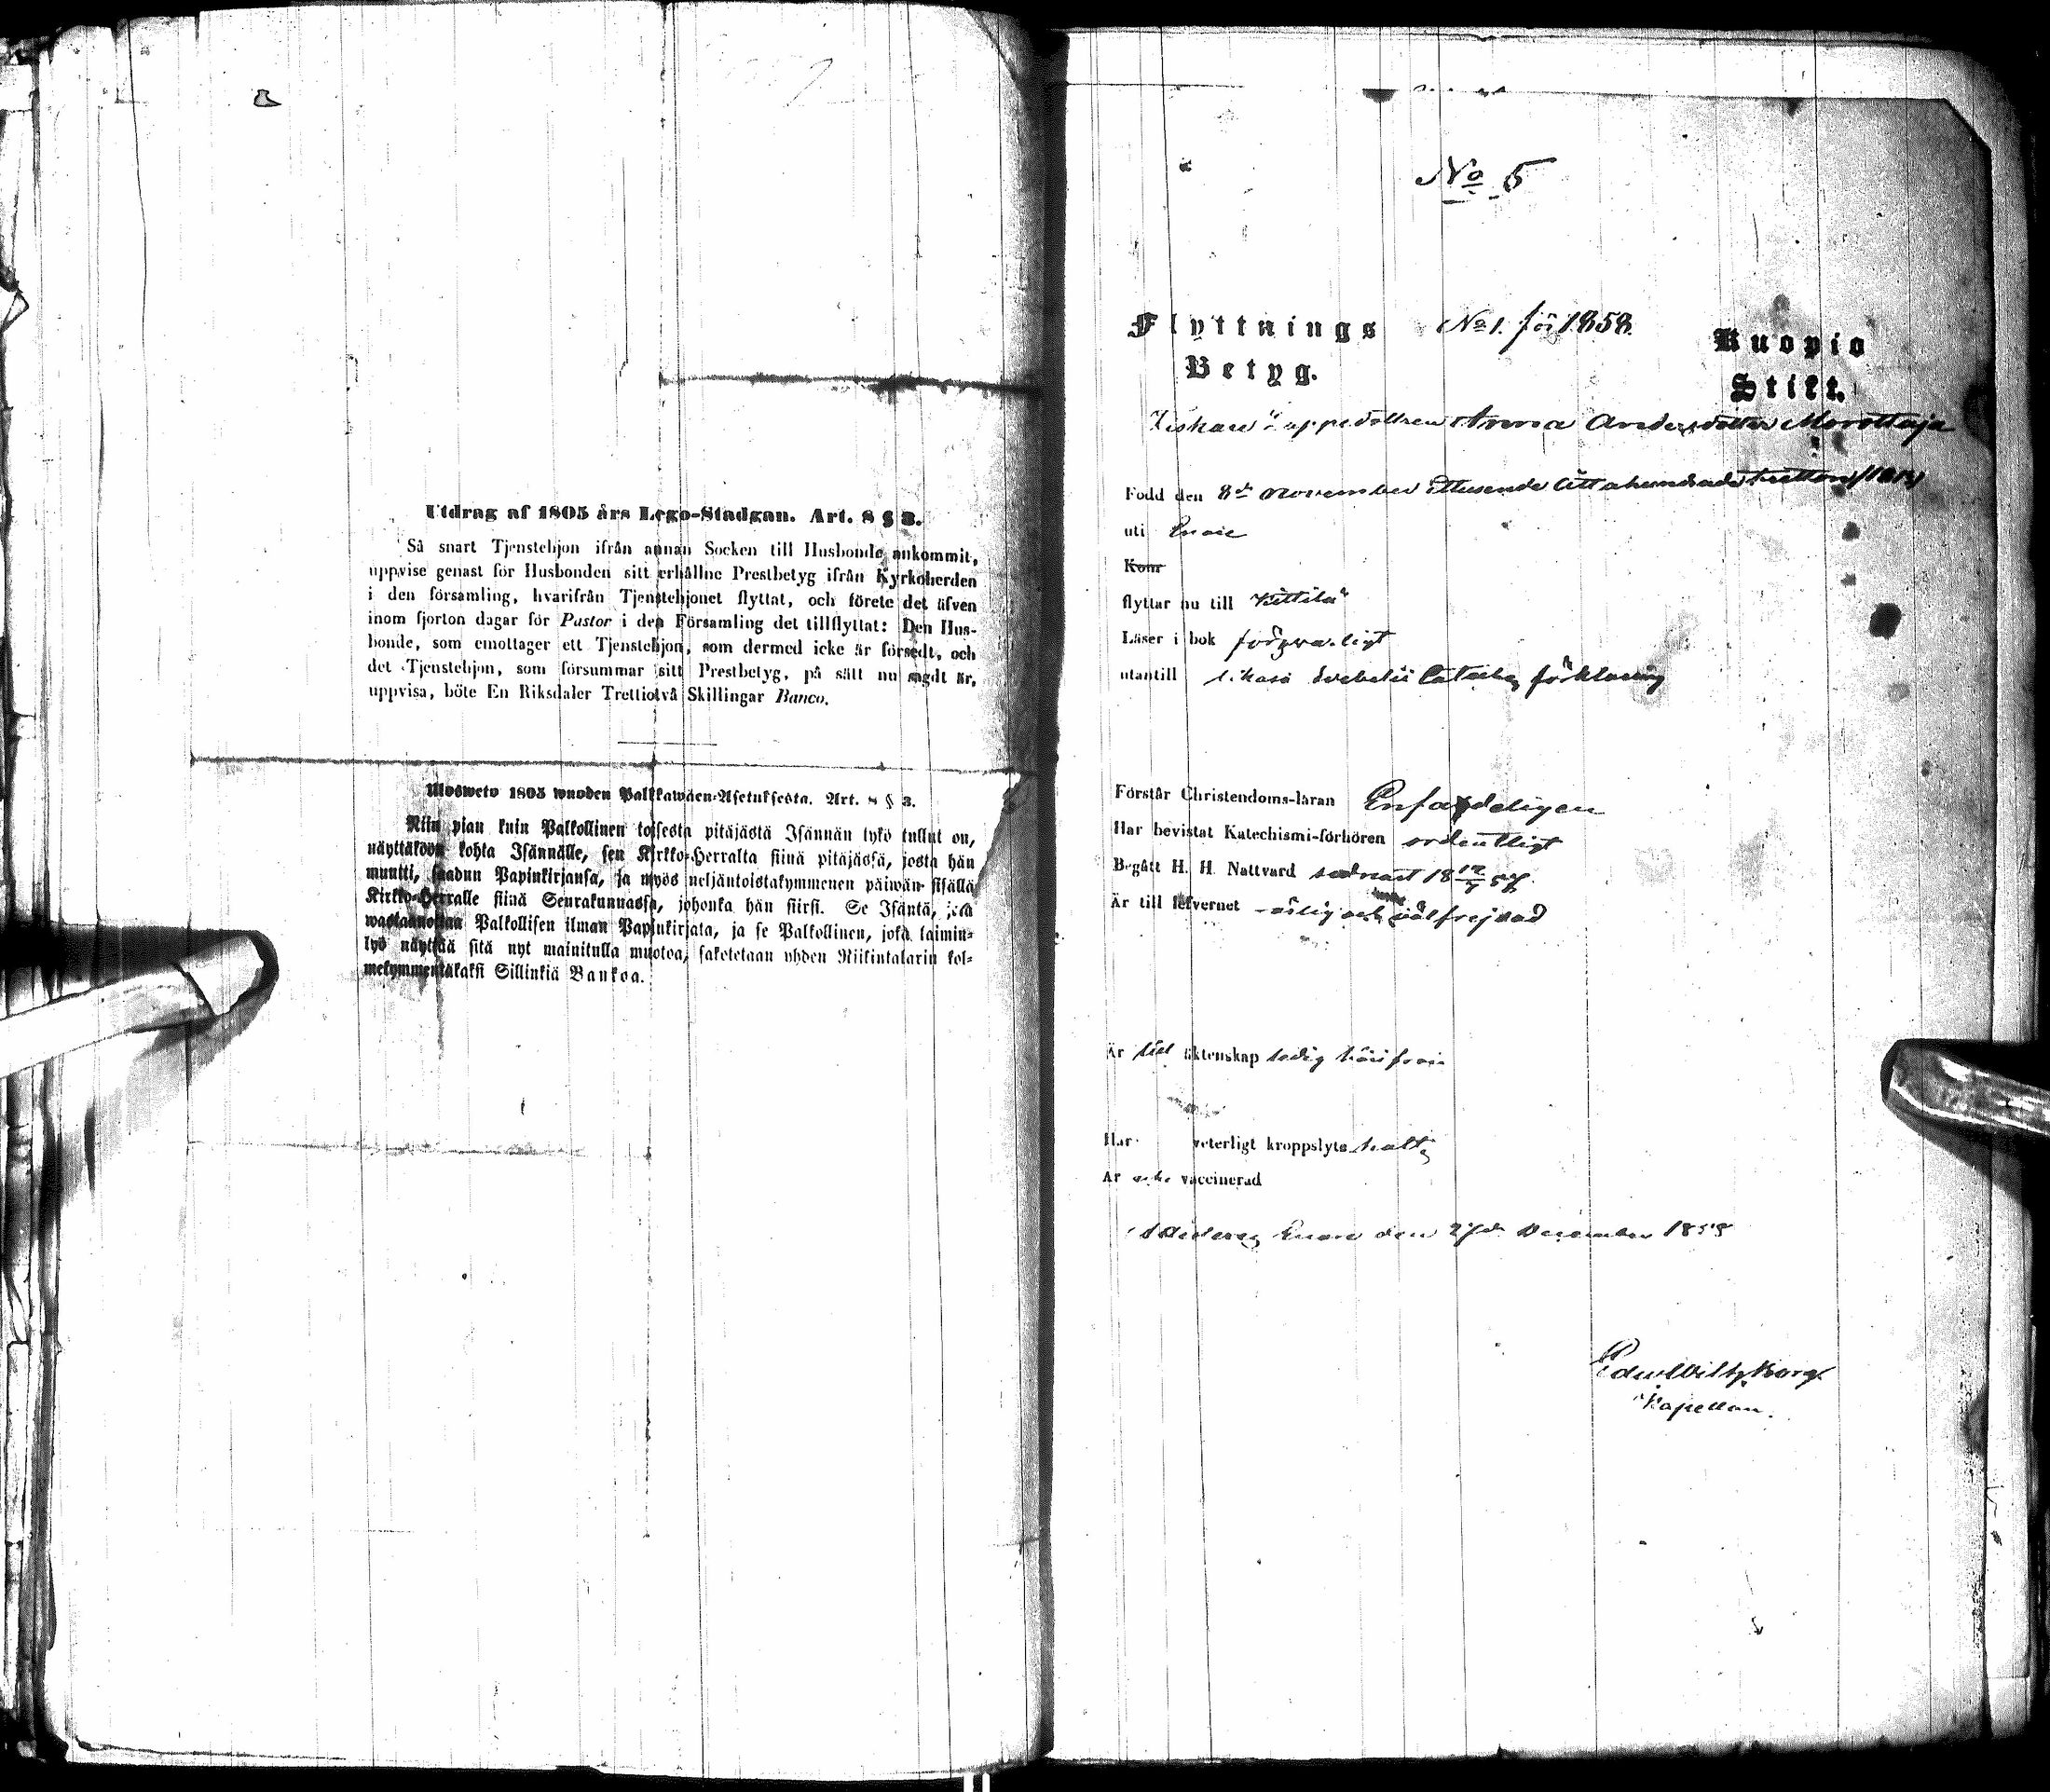 Utdrag af 1805 års Lego-Stadgan. Art. 8 § 3.
Så snart Tjenstehjon ifrån annan Socken till Husbonde ankommit,
uppvise genast för Husbonden sitt erhållne Prestbetyg ifrån Kyrkoherden
i den församling, hvarifrån Tjenstehjonet flyttat, och förete det äfven
inom fjorton dagar för Pastor i den Församling det tillflyttat: Den Hus-
bonde, som emottager ett Tjenstehjon, som dermed icke är försedt, och
det Tjenstehjon, som försummar sitt Prestbetyg, på sätt nu sagdt är,
uppvisa, böte En Riksdaler Trettiotvå Skillingar Banco.
Ulosweto 1805 wuoden Palkkawäen-Asetuksesta. Art. 8 § 3.
Niin pian kuin Palkollinen toisesta pitäjästä Isännän tykö tullut on,
näyttäköön kohta Isännälle, sen Kirkko-Herralta siinä pitäjässä, josta hän
muutti, saadun Papinkirjansa, ja myös neljäntoistakymmenen päiwän sisällä
Kirkko-Herralle siinä Seurakunnassa, johonka hän siirsi. Se Isäntä, joka
wastaanottaa Palkollisen ilman Papinkirjata, ja se Palkollinen, joka laimin-
lyö näyttää sitä nyt mainitulla muotoa, sakotetaan yhden Riikintalarin kol-
mekymmentäkaksi Sillinkiä Bankoa.
No 5
Flyttnings No 1. för 1858. Kuopio
Betyg. Stift.
Anna Andersdotter Morottaja
Född den 8de November Ettusende Åttahundrade tretton (1813)
uti Enare
Kom
flyttar nu till Kittilä
Läser i bok försvarligt
utantill likaså Svebelii Cateches förklaring
Förstår Christendoms-läran Enfaldeligen
Har bevistat Katechismi-förhören ordentligt
Begått H. H. Nattvard sednast 18 12/7 57.
Är till lefvernet ärlig och välfrejdad
Är till äktenskap ledig härifrån
Har veterligt kroppslyte halt
Är icke vaccinerad
Enare den 27de December 1858
Borg
Kapellan.